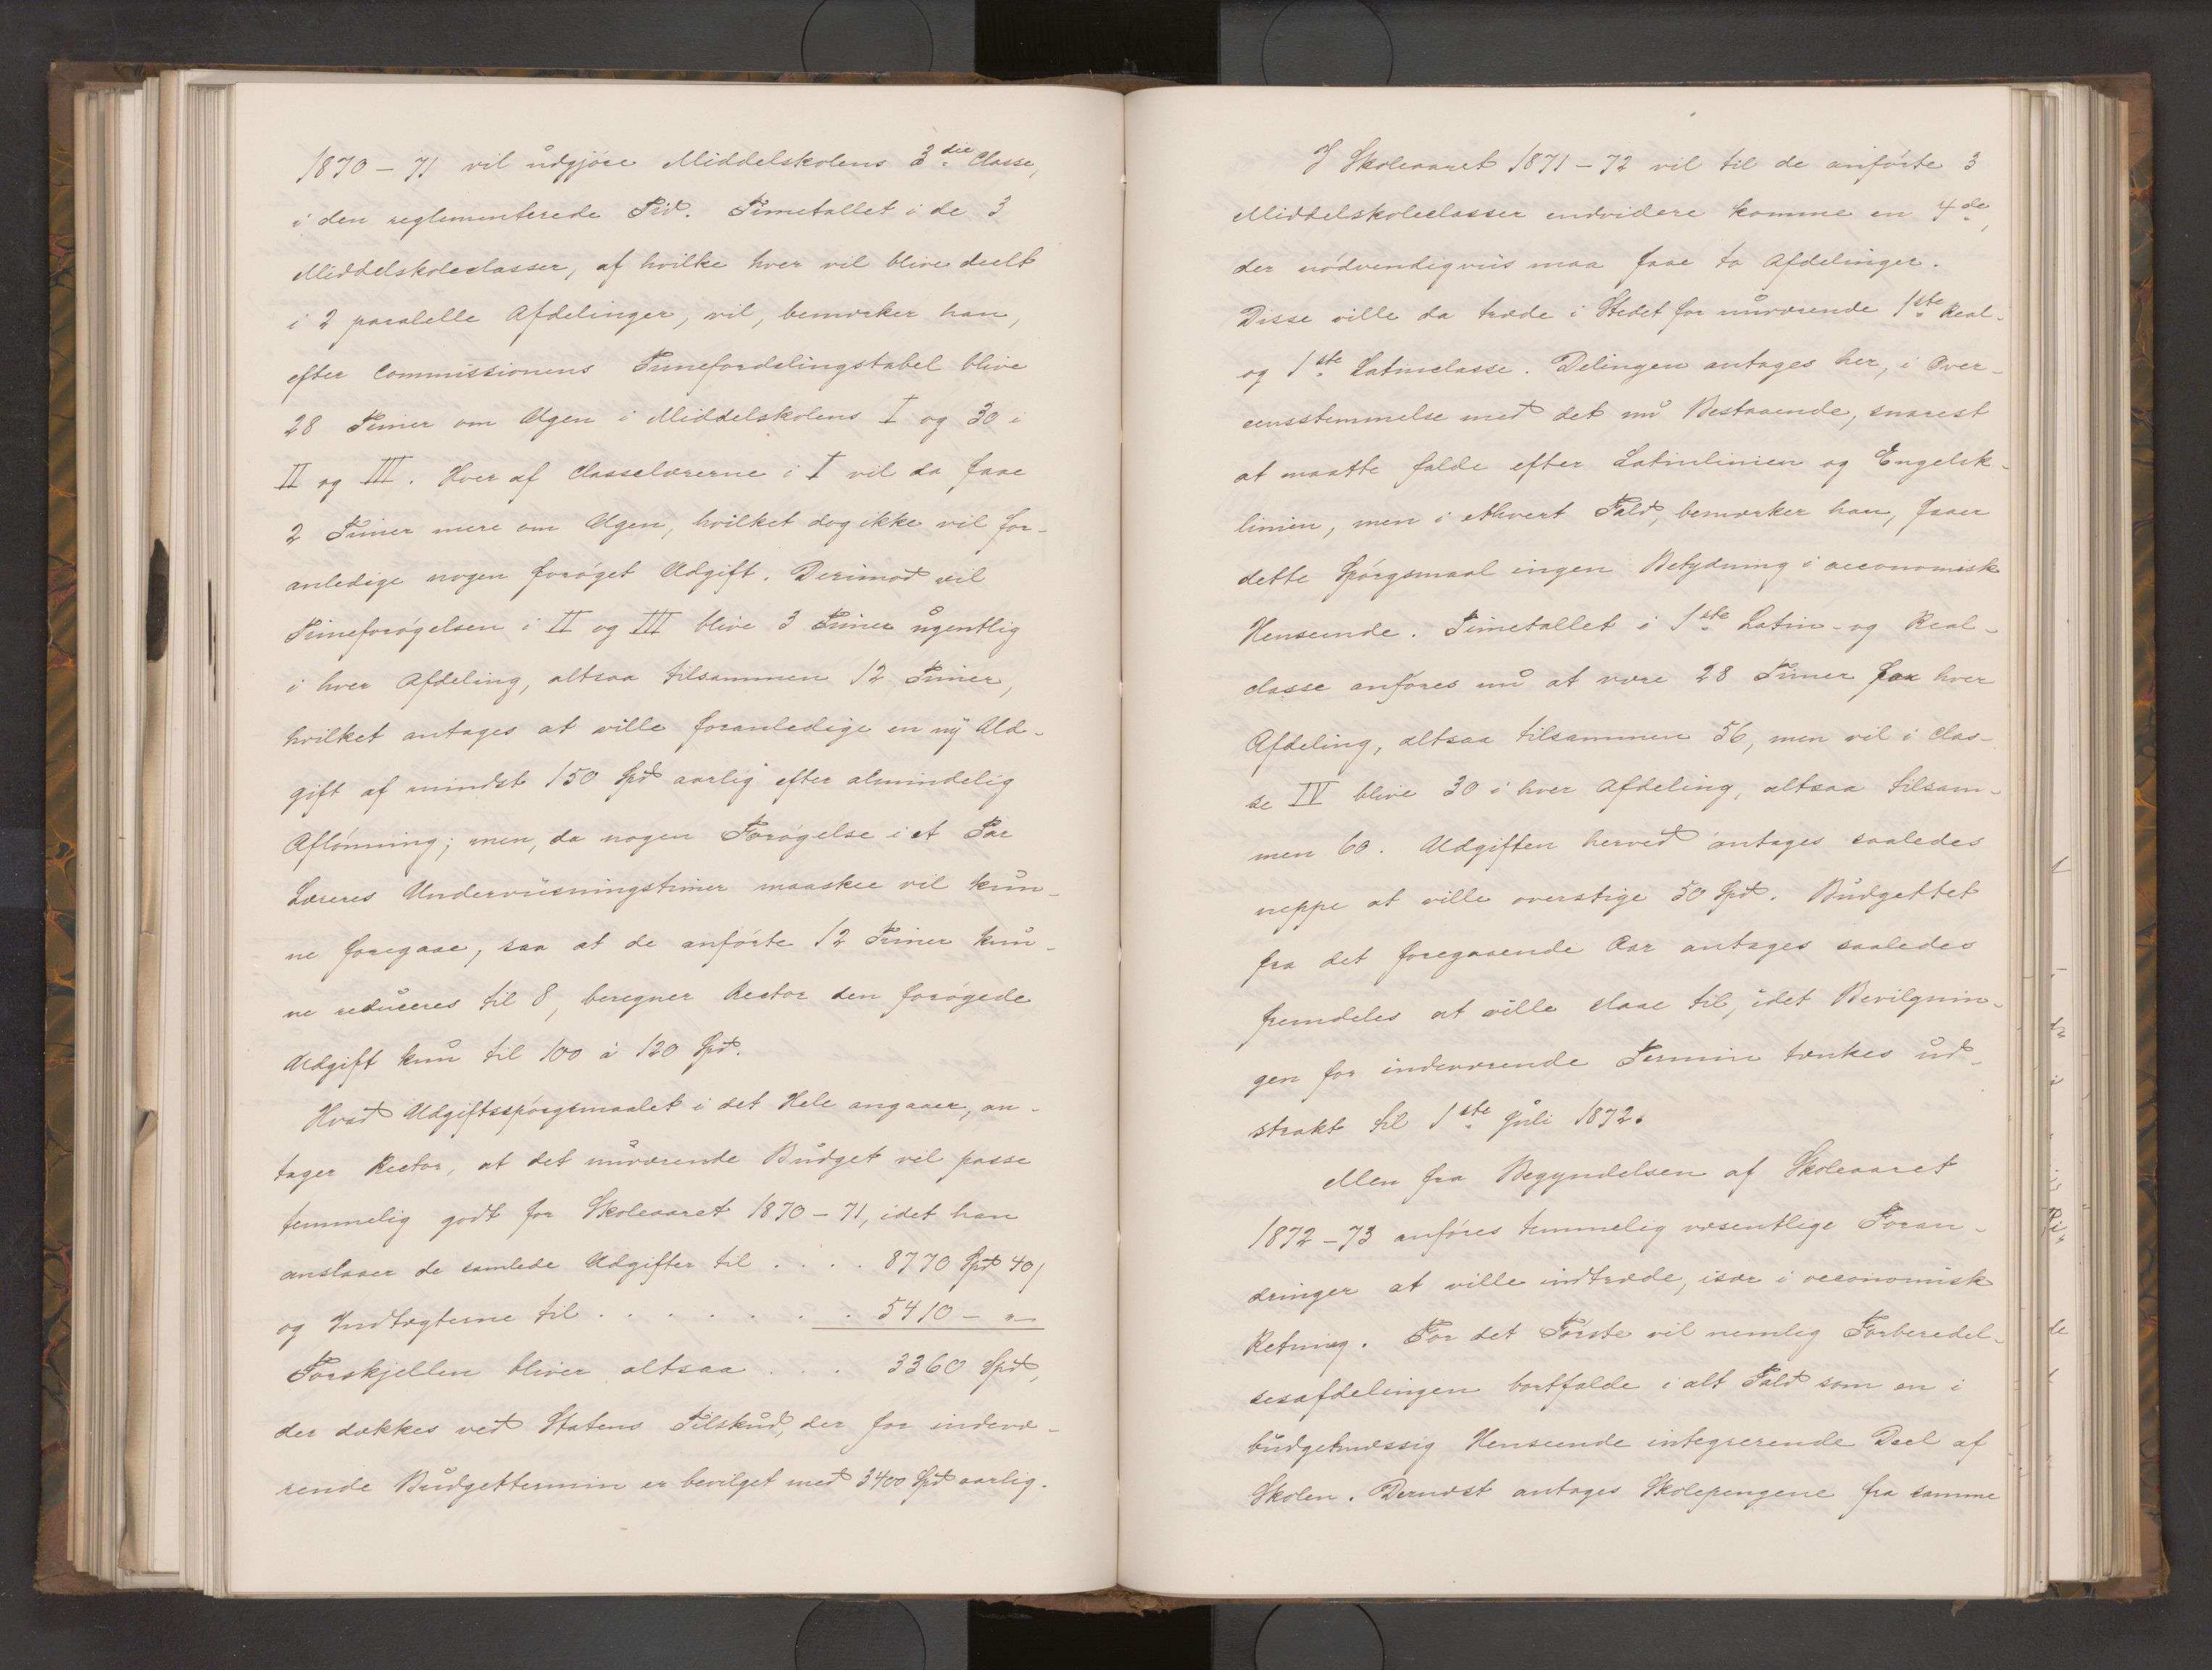 1870 – 71 vil udgjöre Middelskolens 3die Classe,
i den reglementerede Tid. Timetallet i de 3
Middelskoleclasser, af hvilke hver vil blive deelt
i 2 paralelle Afdelinger, vil, bemærker han,
efter Commissionens Timefordelingstabel blive
28 Timer om Ugen i Middelskolens I og 30 i
II og III. Hver af Classelærerne i I vil da faae
2 Timer mere om Ugen, hvilket dog ikke vil for-
anledige nogen foröget Udgift. Derimod vil
Timeforögelsen i II og III blive 3 Timer ugentlig
i hver Afdeling, altsaa tilsammen 12 Timer,
hvilket antages at ville foranledige en ny Ud-
gift af mindst 150 Spd aarlig efter almindelig
Aflönning; men, da nogen Forögelse i et Par
Læreres Underviisningstimer maaskee vil kun-
ne foregaae, saa at de anförte 12 Timer kun-
ne reduceres til 8, beregner Rector den forögede
Udgift kun til 100 à 120 Spd.
Hvad Udgiftsspörgsmaalet i det Hele angaaer, an-
tager Rector, at det nuværende Budget vil passe
temmelig godt for Skoleaaret 1870 – 71, idet han
anslaaer de samlede Udgifter til . . . . 8770 Spd 40 /
og Indtægterne til . . . . . . . 5410 – „ –
Forskjellen bliver altsaa . . . 3360 Spd,
der dækkes ved Statens Tilskud, der for indevæ-
rende Budgettermin er bevilget med 3400 Spd aarlig.
I Skoleaaret 1871 – 72 vil til de anförte 3
Middelskoleclasser endvidere komme en 4de,
der nödvendigviis maa faae to Afdelinger.
Disse ville da træde i Stedet for nuværende 1ste Real-
og 1ste Latinclasse. Delingen antages her, i Over-
eensstemmelse med det nu Bestaaende, snarest
at maatte falde efter Latinlinien og Engelsk-
linien, men i ethvert Fald, bemærker han, faaer
dette Spörgsmaal ingen Betydning i oeconomisk
Henseende. Timetallet i 1ste Latin- og Real-
classe anföres nu at være 28 Timer for hver
Afdeling, altsaa tilsammen 56, men vil i Clas-
se IV blive 30 i hver Afdeling, altsaa tilsam-
men 60. Udgiften herved antages saaledes
neppe at ville overstige 50 Spd. Budgettet
fra det foregaaende Aar antages saaledes
fremdeles at ville slaae til, idet Bevilgnin-
gen for indeværende Termin tænkes ud-
strakt til 1ste Juli 1872.
Men fra Begyndelsen af Skoleaaret
1872 – 73 anföres temmelig væsentlige Foran-
dringer at ville indtræde, især i oeconomisk
Retning. For det Förste vil nemlig Forberedel-
sesafdelingen bortfalde i alt Fald som en i
budgetmæssig Henseende integrerende Deel af
Skolen. Dernæst antages Skolepengene fra samme